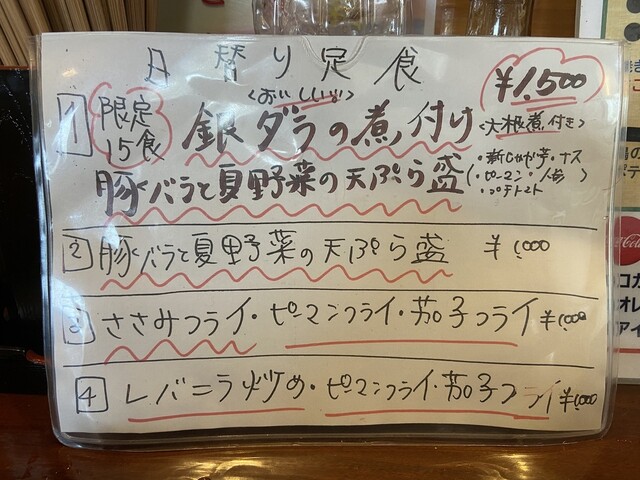 日替り定食
¥1,500
1 限定15食 <おいしいよ> 銀ダラの煮付け <大根煮付き>
豚バラと夏野菜の天ぷら盛 (・新じゃが芋・ナス ・ピーマン・人参 ・プチトマト)
2 豚バラと夏野菜の天ぷら盛 ¥1,000
3 ささみフライ・ピーマンフライ・茄子フライ ¥1,000
4 レバニラ炒め・ピーマンフライ・茄子フライ ¥1,000
Coca-Cola
コカ
オレ
アイ